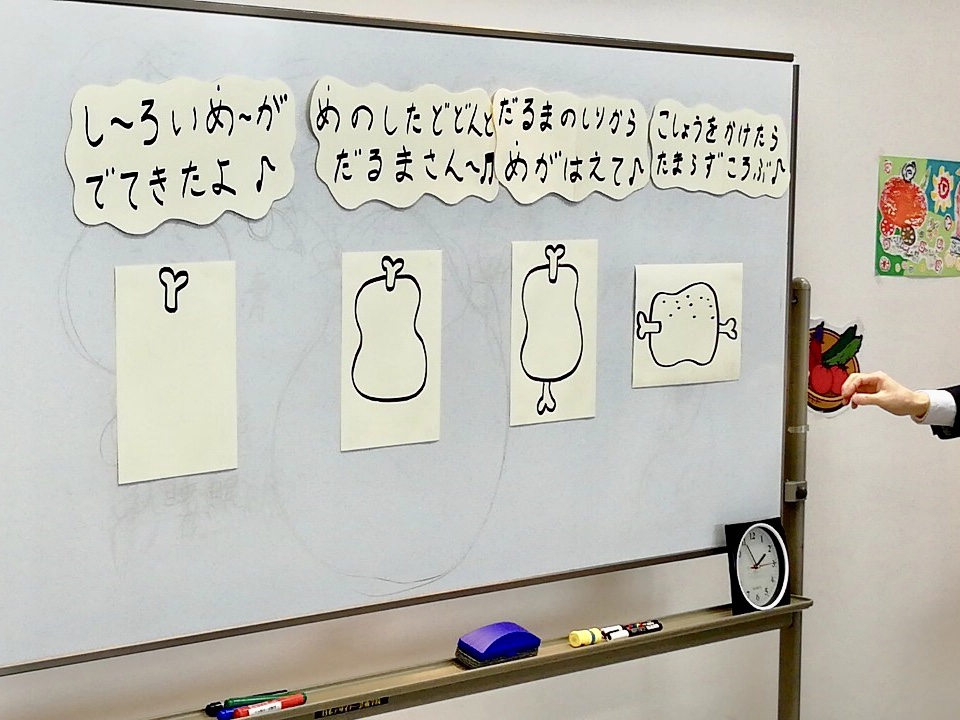 し〜ろいめ〜が
でてきたよ♪
めのしたどどんと
だるまさん〜♫
だるまのしりから
めがはえて♪
こしょうをかけたら
たまらずころぶ♪